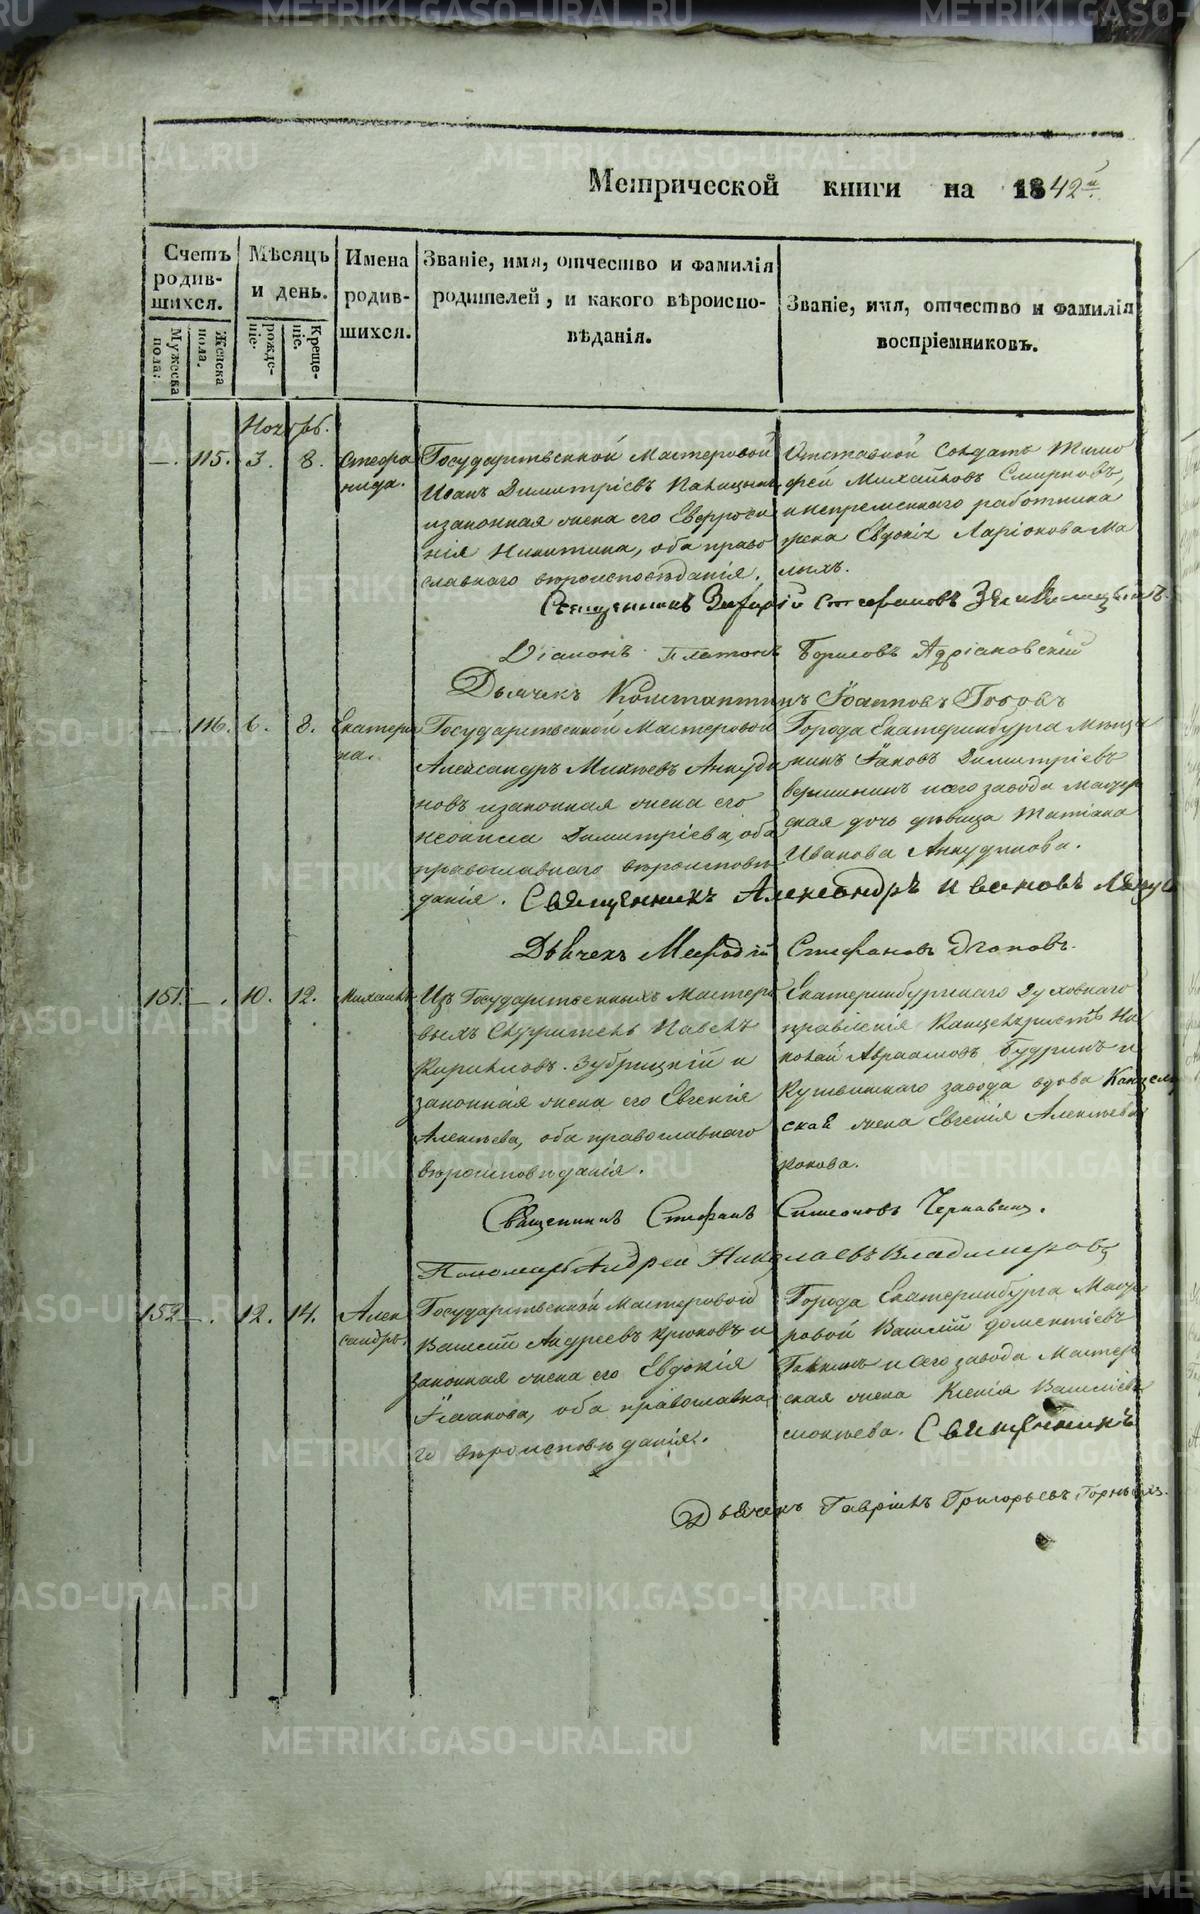 Метрической книги на 1842й.
Счетъ родив-шихся.
Мужеска пола.
Женска пола.
Мѣсяцъ и день.
рожде-ніе.
Креще-ніе.
Имена родив-шихся.
Званіе, имя, отчество и фамилія
родителей, и какого вѣроиспо-
вѣданія.
Званіе, имя, отчество и фамилія
воспріемниковъ.
Ноября.
—. 115. 3. 8. Стефа
нида.
Государственной Мастеровой
Иванъ Димитріевъ
и законная жена его Евфросі
нія Никитина, оба право
славнаго вѣроисповѣданія.
Отставной Солдатъ Тимо
фей Михайловъ Смирновъ,
и непремѣннаго работника
жена Евдокія Ларіонова Ма
лыхъ.
Священникъ Стефановъ
Діаконъ Платонъ Борисовъ Адріановскій
Дьячекъ Константинъ Іоанновъ Поповъ
—. 116. 6. 8. Екатери
на.
Государственной Мастеровой
Александръ Михѣевъ Анкуди
новъ и законная жена его
Неонила Димитріева, оба
православнаго вѣроисповѣ
данія.
Города Екатеринбурга Мѣща
нинъ Іаковъ Димитріевъ
Вершининъ и сего завода Мастер
ская дочь дѣвица Татіана
Иванова Анкудинова.
Священникъ Александръ Ивановъ
Дьячекъ Мефодій Стефановъ
151. —. 10. 12. Михаилъ.
Изъ Государственныхъ Мастеро
выхъ Павелъ
Кириловъ Зубрицкій и
законная жена его Евгенія
Алексѣева, оба православнаго
вѣроисповѣданія.
Екатеринбургскаго Духовнаго
правленія Канцеляристъ Ни
колай Авраамовъ Будринъ и
Кушвинскаго завода вдова Канцеляр
ская жена Евгенія Алексѣева
Священникъ Стефанъ Симеоновъ Чернавинъ.
Пономарь Андрей Николаевъ Владимировъ
152. —. 12. 14. Алек
сандръ.
Государственной Мастеровой
Василій Андреевъ Крюковъ и
законная жена его Евдокія
Исаакова, оба православна
го вѣроисповѣданія.
Города Екатеринбурга Масте
ровой Василій Доментіевъ
и сего завода Мастер
ская жена Ксенія Василіева
Священникъ
Дьячекъ Гавріилъ Григорьевъ
METRIKI.GASO-URAL.RU